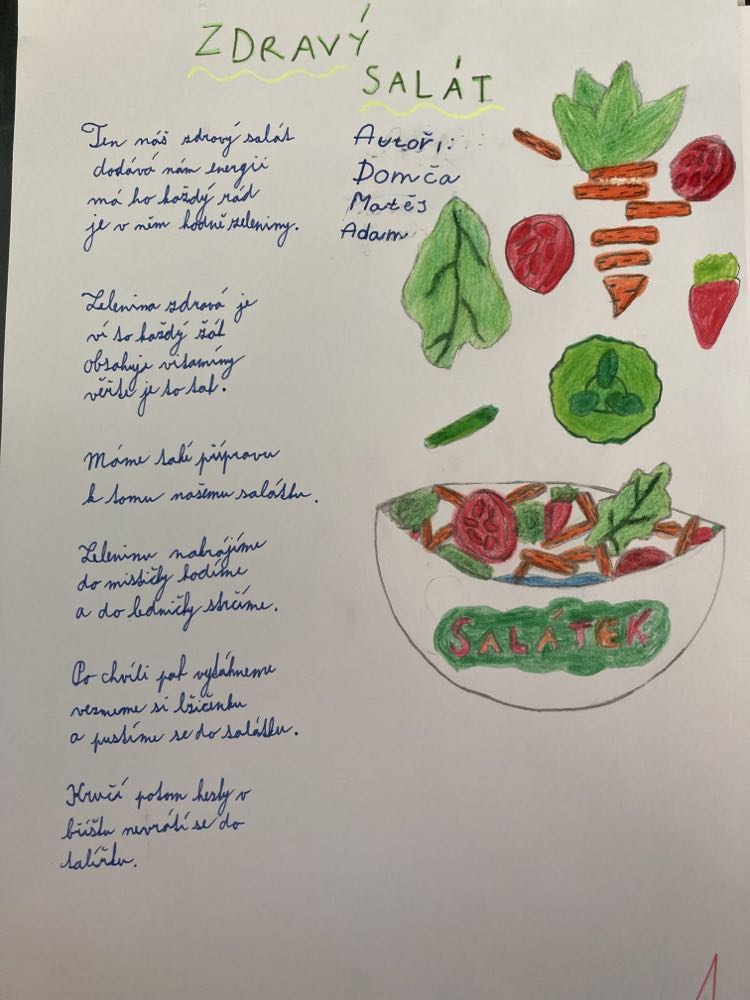 ZDRAVÝ
SALÁT
Autoři:
Domča
Matěj
Adam
Ten náš zdravý salát
dodává nám energii
má ho každý rád
je v něm hodně zeleniny.
Zelenina zdravá je
ví to každý žák
obsahuje vitamíny
věřte je to tak.
Máme také přípravu
k tomu našemu salátku.
Zeleninu nakrájíme
do mističky hodíme
a do ledničky strčíme.
Po chvíli pak vytáhneme
vezmeme si lžičenku
a pustíme se do salátku.
Kručí potom hesky v
bříšku nevrátí se do
talířku.
SALÁTEK